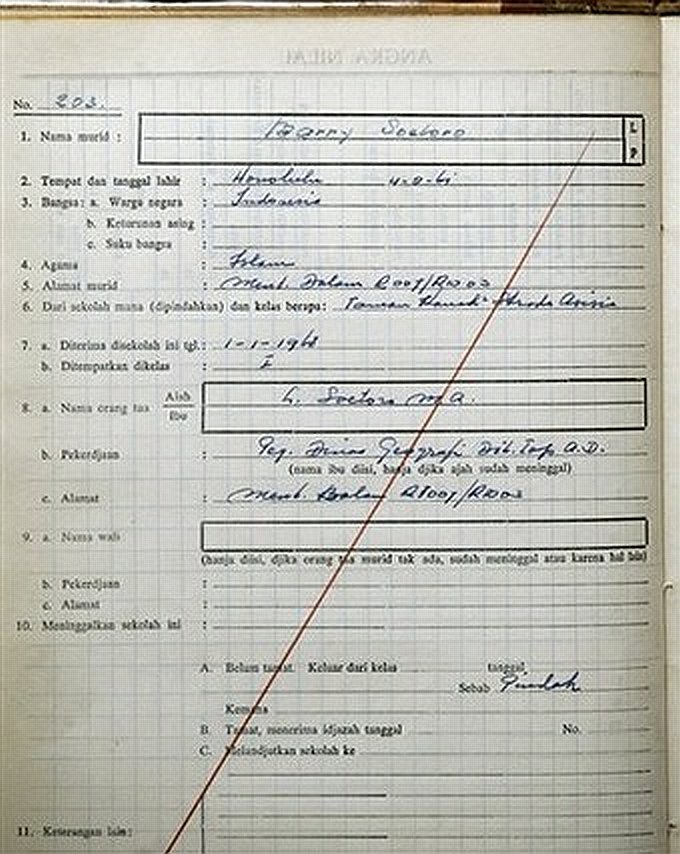 ANGKA NILAI
No. 203.
1. Nama murid : Barry Soetoro L
P
2. Tempat dan tanggal lahir : Honolulu 4-8-61
3. Bangsa: a. Warga negara : Indonesia
b. Keturunan asing :
c. Suku bangsa :
4. Agama : Islam
5. Alamat murid : Ment. Dalam R001/RW03
6. Dari sekolah mana (dipindahkan) dan kelas berapa: Taman Kanak² Strada Asisia
7. a. Diterima disekolah ini tgl.: 1-1-1968
b. Ditempatkan dikelas : I
8. a. Nama orang tua Ajah L. Soetoro M.A.
Ibu
b. Pekerdjaan : Peg. Dinas Geografi Dit. Top. A.D.
(nama ibu diisi, hanja djika ajah sudah meninggal)
c. Alamat : Ment. Dalam R001/RW03
9. a. Nama wali
(hanja diisi, djika orang tua murid tak ada, sudah meninggal atau karena hal lain)
b. Pekerdjaan :
c. Alamat :
10. Meninggalkan sekolah ini :
A. Belum tamat. Keluar dari kelas tanggal
Sebab Pindah
Kemana
B. Tamat, menerima idjazah tanggal No.
C. Melandjutkan sekolah ke
11. Keterangan lain: